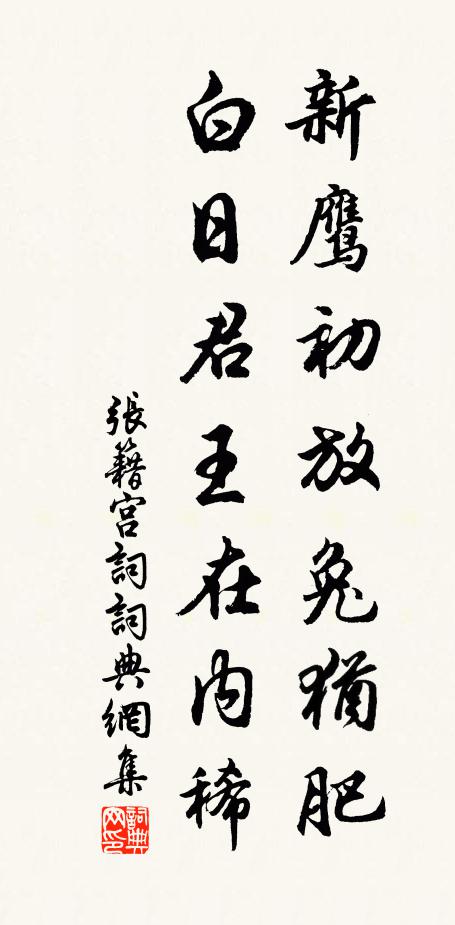 新鹰初放兔猶肥
白日君王在内稀
張籍宫詞詞典網集
詞典网印